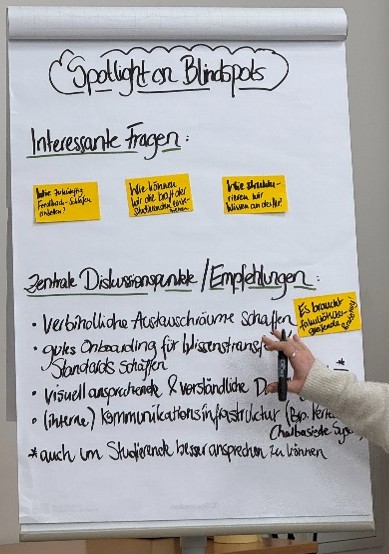 Spotlight on Blindspots
Interessante Fragen:
Wie
Feedback-Schleifen
Wie können
wir die
Studierenden
Wie struktu-
rieren wir
Wissen an der
Zentrale Diskussionspunkte / Empfehlungen:
Es braucht
fakultätsüber-
greifende
• Verbindliche Austauschräume schaffen
• gutes Onboarding für Wissenstransf
Standards schaffen
• visuell ansprechende & verständliche D
• (interne) Kommunikationsinfrastruktur (Bsp.
Chatbasierte Sys
* auch um Studierende besser ansprechen zu können